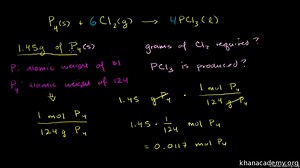 P₄(s) + 6Cl₂(g) → 4PCl₃(l)
1.45g of P₄(s)
grams of Cl₂ required?
P: atomic weight of 31
PCl₃ is produced?
P₄ atomic weight of 124
1.45 g P₄ · 1 mol P₄ / 124 g P₄
1 mol P₄ / 124 g P₄
1.45 · 1/124 mol P₄
= 0.0117 mol P₄
khanacademy.org